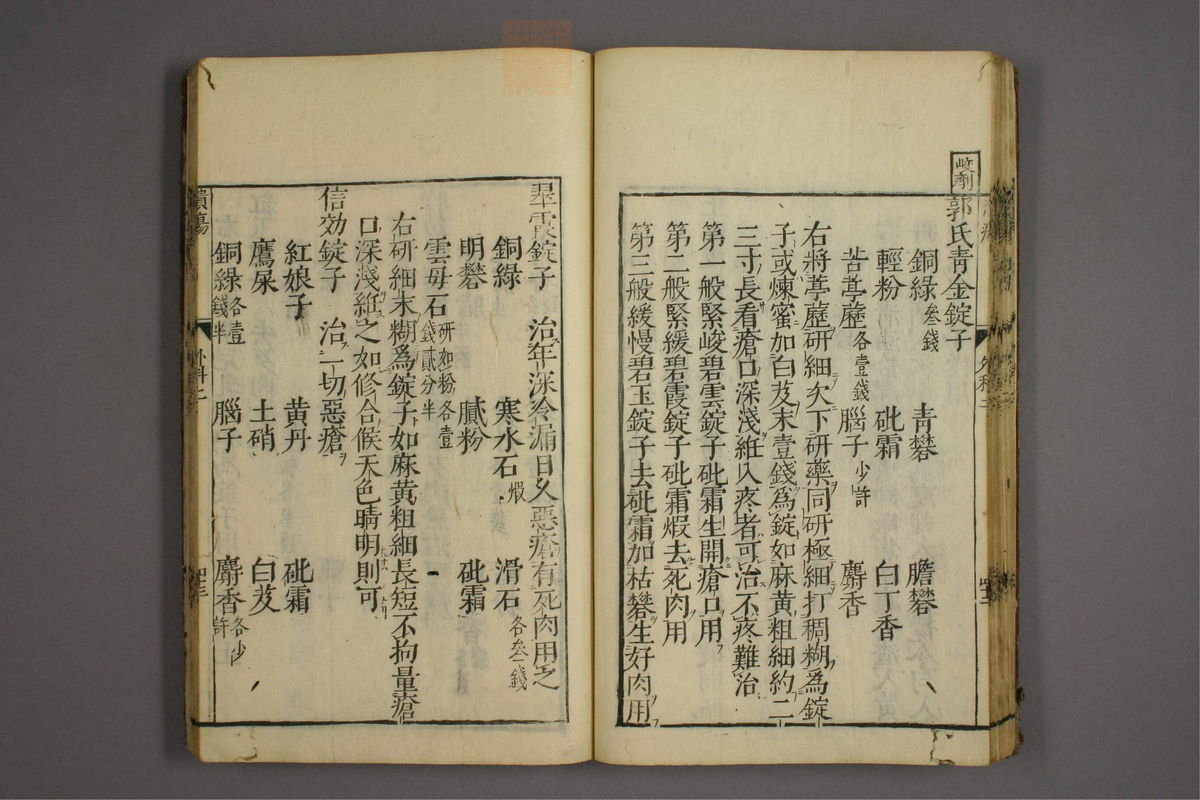 郭氏青金錠子
銅綠 叁錢 青礬 膽礬
輕粉 砒霜 白丁香
苦葶藶 各壹錢 腦子 少許 麝香
右將葶藶研細次下研藥同研極細打稠糊爲錠
子或煉蜜加白芨末壹錢爲錠如麻黃粗細約二
三寸長看瘡口深淺紝入疼者可治不疼難治
第一般緊峻碧雲錠子砒霜生開瘡口用
第二般緊緩碧霞錠子砒霜煆去死肉用
第三般緩慢碧玉錠子去砒霜加枯礬生好肉用
翠霞錠子 治年深冷漏日久惡瘡有死肉用之
銅綠 寒水石 煆 滑石 各叁錢
明礬 膩粉 砒霜
雲母石 研如粉各壹錢貳分半
右研細末糊爲錠子如麻黃粗細長短不拘量瘡
口深淺紝之如修合候天色晴明則可
信効錠子 治一切惡瘡
紅娘子 黃丹 砒霜
鷹屎 土硝 白芨
銅綠 各壹錢半 腦子 麝香 各少許
潰瘍
外科二